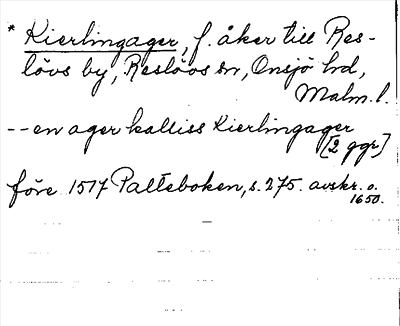 * Kierlingager, f. åker till Res-
lövs by, Reslövs sn, Onsjö hd,
Malm. l.
-- en ager kalliss Kierlingager
[2 ggr]
före 1517 Palteboken, s. 275. avskr. o.
1650.